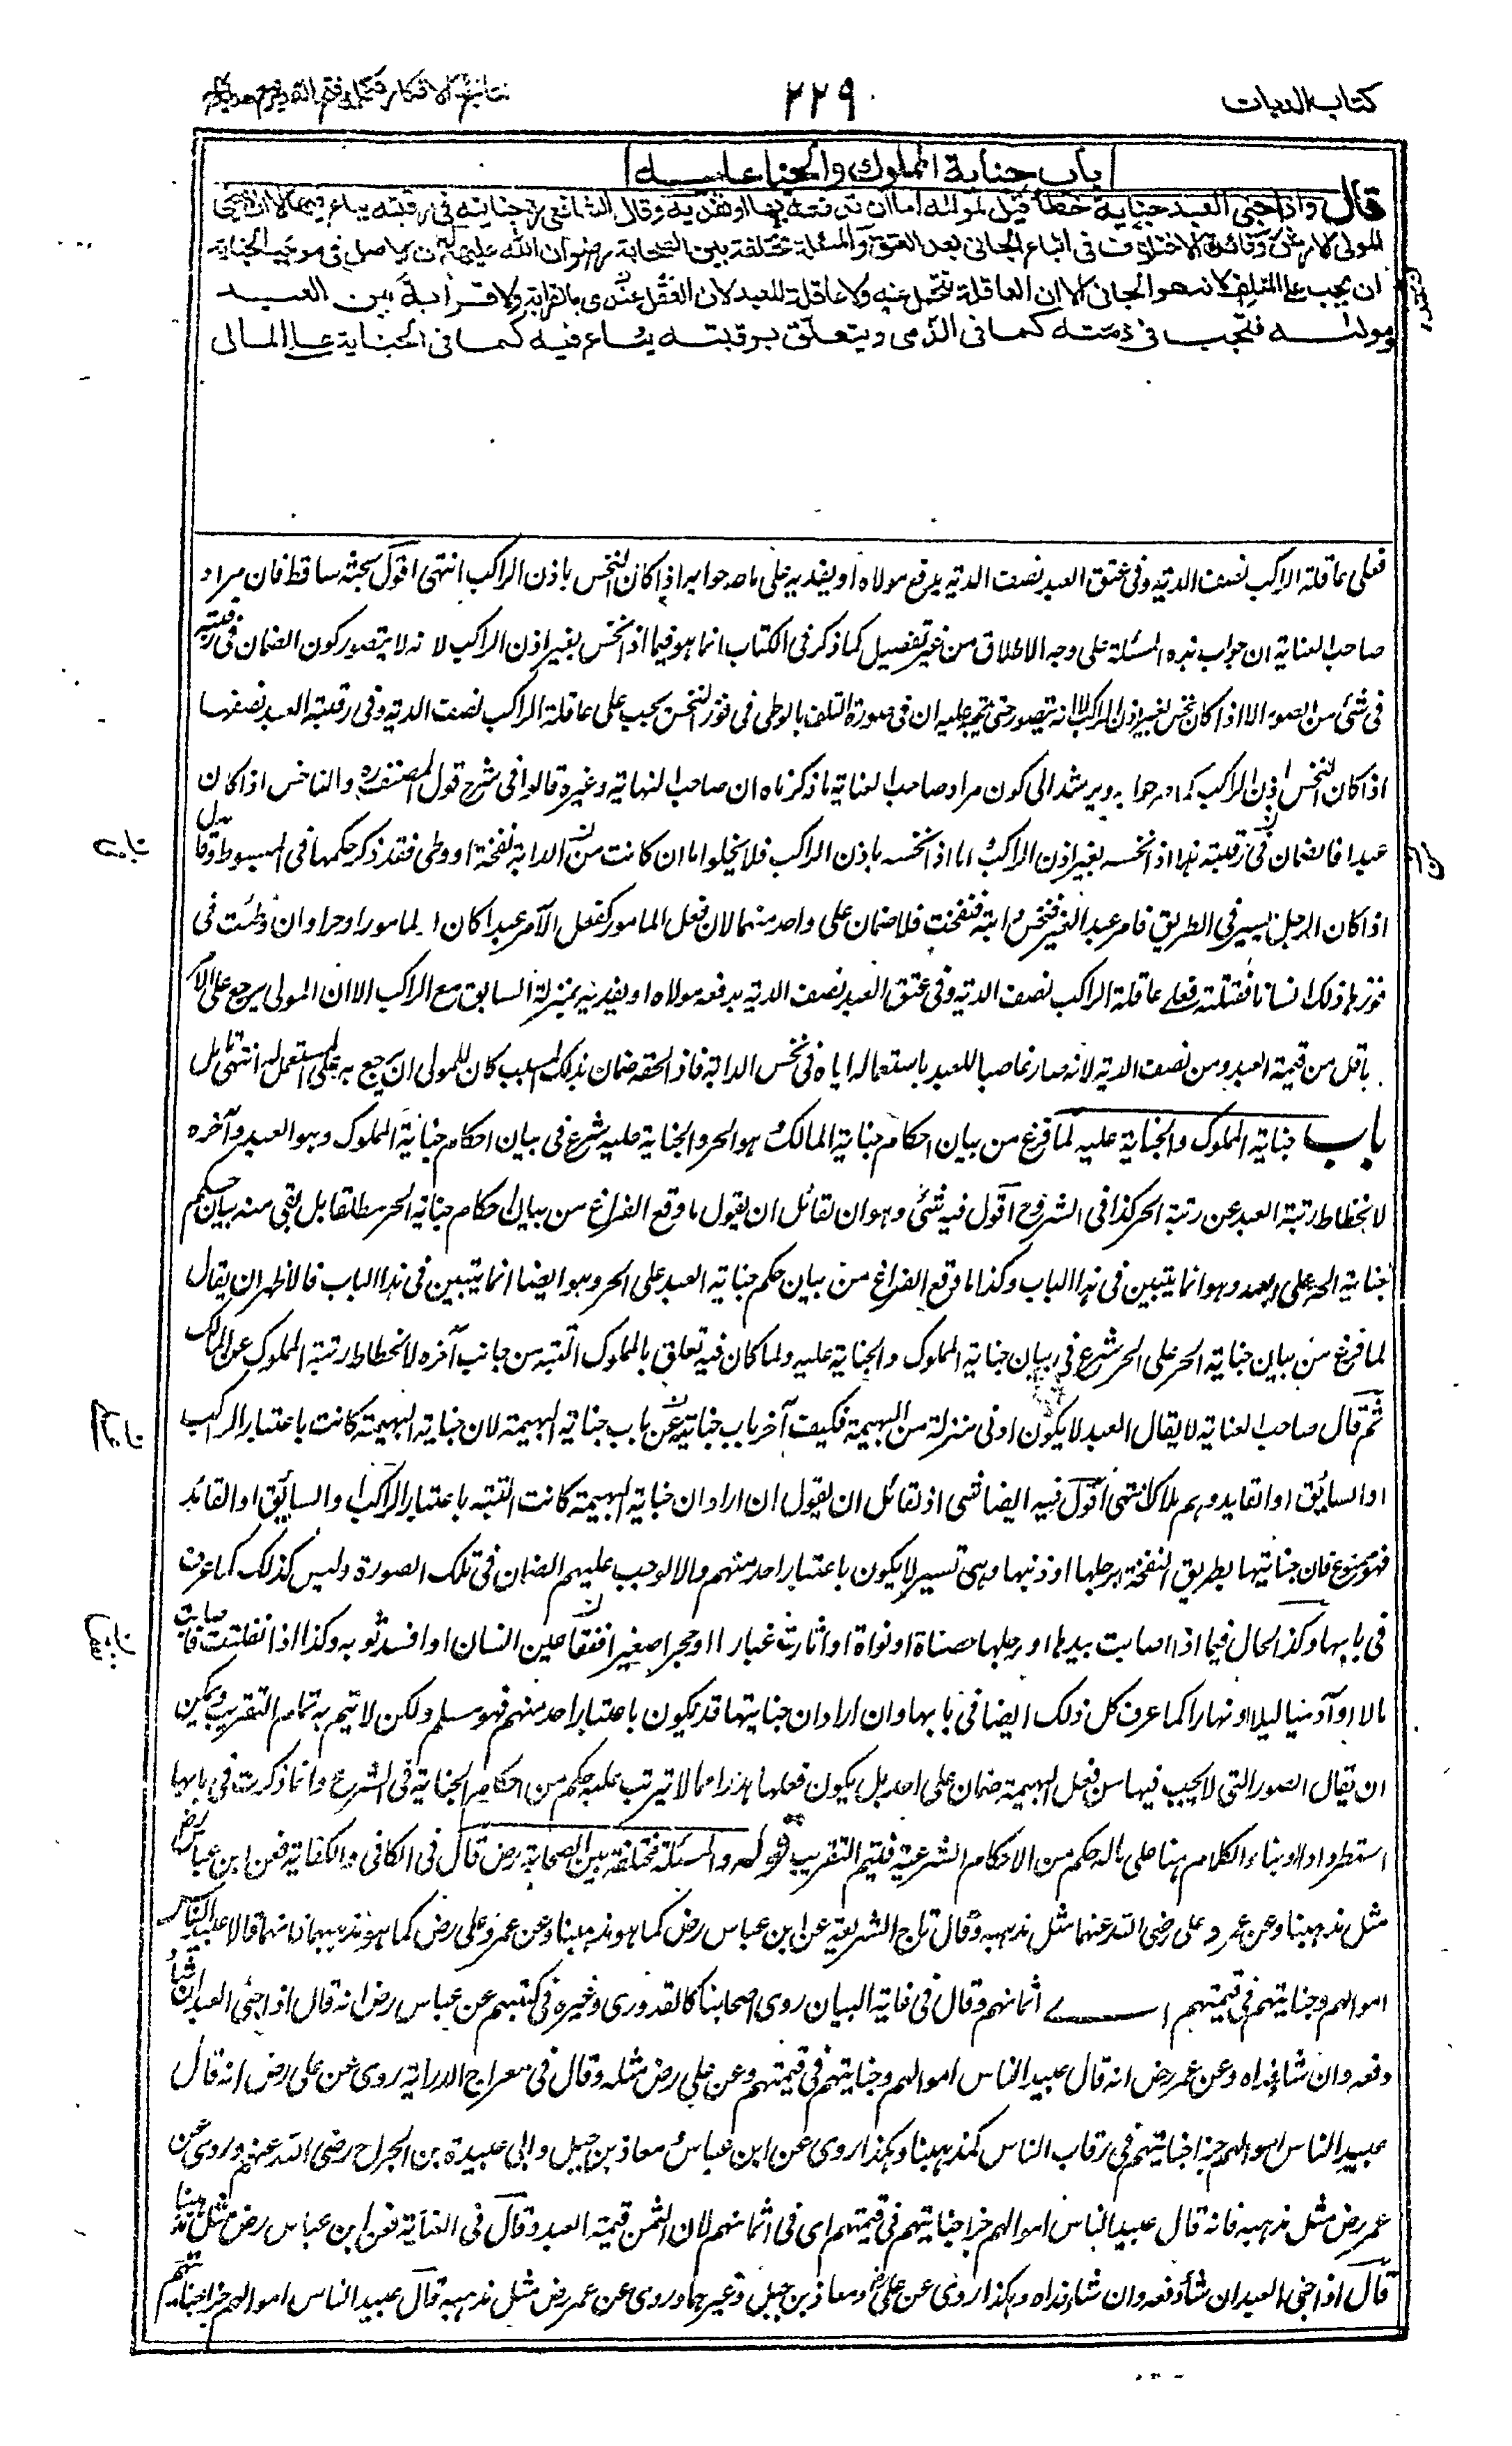 كتاب الديات
٢٢٩
نتائج الافكار تكملة فتح القدير مع هدايه
باب جناية المملوك والجناية عليه
قال واذا جنى العبد جناية خطأ قيل لمولاه اما ان تدفعه بها او تفديه وقال الشافعي رح جنايته في رقبته يباع فيها الا ان يقضي
المولى الارش وفائدة الاختلاف في اتباع الجاني بعد العتق والمسئلة مختلفة بين الصحابة رضوان الله عليهم له ان الاصل في موجب الجناية
ان يجب على المتلف لانه هو الجاني الا ان العاقلة تتحمل عنه ولا عاقلة للعبد لان العقل عندي بالقرابة ولا قرابة بين العبد
ومولاه فتجب في ذمته كما في الذمي ويتعلق برقبته يباع فيه كما في الجناية على المال
فعلى عاقلة الراكب نصف الدية وفي عتق العبد نصف الدية يدفع مولاه او يفديه على ما هو جوابه اذا كان النخس باذن الراكب انتهى اقول بحثه ساقط فان مراد
صاحب العناية ان جواب هذه المسئلة على وجه الاطلاق من غير تفصيل كما ذكر في الكتاب انما هو فيما اذا نخس بغير اذن الراكب لا نه لا يتصور كون الضمان في رقبته
في شئ من الصور الا اذا كان نخس بغير اذن الراكب لا انه يتصور حتى يتجه عليه ان في صورة التلف بالوطى في فور النخس يجب على عاقلة الراكب نصف الدية وفي رقبة العبد نصفها
اذا كان النخس باذن الراكب كما هو جوابه ويرشد الى كون مراد صاحب العناية ما ذكرناه ان صاحب النهاية وغيره قالوا في شرح قول المصنف ره والناخس اذا كان
عبدا فالضمان في رقبته هذا اذا نخسه بغير اذن الراكب اما اذا نخسه باذن الراكب فلا يخلوا ما ان كانت من الدابة نفخة او وطى فقد ذكر حكمها في المبسوط وقال
اذا كان الرجل يسير في الطريق فامر عبد الغير فنخس دابته فنفخت فلا ضمان على واحد منهما لان فعل المامور كفعل الآمر عبدا كان المامور او حرا وان وطئت في
فورها ذلك انسانا فقتلته فعلى عاقلة الراكب نصف الدية وفي عتق العبد نصف الدية يدفعه مولاه او يفديه بمنزلة السابق مع الراكب الا ان المولى يرجع على الآمر
باقل من قيمة العبد ومن نصف الدية لانه صار غاصبا للعبد باستعماله اياه في نخس الدابة فاذا لحقه ضمان بذلك السبب كان للمولى ان يرجع به على المستعمل له انتهى تامل
باب جناية المملوك والجناية عليه لما فرغ من بيان احكام جناية المالك وهو الحر والجناية عليه شرع في بيان احكام جناية المملوك وهو العبد وآخره
لانحطاط رتبة العبد عن رتبة الحر كذا في الشروح اقول فيه شئ وهو ان لقائل ان يقول ما وقع الفراغ من بيان احكام جناية الحر مطلقا بل بقي منه بيان حكم
جناية الحر على العبد وهو انما يتبين في هذا الباب وكذا ما وقع الفراغ من بيان حكم جناية العبد على الحر وهو ايضا انما يتبين في هذا الباب فالاظهر ان يقال
لما فرغ من بيان جناية الحر على الحر شرع في بيان جناية المملوك والجناية عليه ولما كان فيه تعلق بالمملوك البتة من جانب آخره لانحطاط رتبة المملوك عن المالك
ثم قال صاحب العناية لا يقال العبد لا يكون ادنى منزلة من البهيمة فكيف آخر باب جنايته عن باب جناية البهيمة لان جناية البهيمة كانت باعتبار الراكب
او السائق او القايد وهم ملاك انتهى اقول فيه ايضا شئ اذ لقائل ان يقول ان اراد ان جناية البهيمة كانت البتة باعتبار الراكب او السايق او القائد
فهو ممنوع فان جنايتها بطريق النفخة برجلها او ذنبها وهي تسير لا يكون باعتبار احد منهم والا لوجب عليهم الضمان في تلك الصورة وليس كذلك كما عرف
في بابها وكذا الحال فيما اذا اصابت بيدها او رجلها حصاة او نواة او اثارت غبارا او حجرا صغيرا ففقأ عين انسان او افسد ثوبه وكذا اذا انفلتت فاصابت
مالا او آدميا ليلا او نهارا كما عرف كل ذلك ايضا في بابها وان اراد ان جنايتها قد يكون باعتبار احد منهم فهو مسلم ولكن لا يتم به تمام التقريب ويمكن
ان يقال الصور التي لا يجب فيها من فعل البهيمة ضمان على احد بل يكون فعلها هدرا مما لا يترتب عليه حكم من احكام الجناية في الشرع وانما ذكرت في بابها
استطرادا وبناء الكلام هنا على ما له حكم من الاحكام الشرعية فيتم التقريب قوله والمسئلة مختلفة بين الصحابة رض قال في الكافي والكفاية فعن ابن عباس رض
مثل مذهبنا وعن عمر وعلي رضي الله عنهما مثل مذهبه وقال تاج الشريعة عن ابن عباس رض كما هو مذهبنا وعن عمر وعلي رض كما هو مذهبه فانهما قالا عبيد الناس
اموالهم وجنايتهم في قيمتهم اي اثمانهم وقال في غاية البيان روى اصحابنا كالقدوري وغيره في كتبهم عن عباس رض انه قال اذا جنى العبد ان شاء
دفعه وان شاء فداه وعن عمر رض انه قال عبيد الناس اموالهم وجنايتهم في قيمتهم وعن علي رض مثله وقال في معراج الدراية روى عن علي رض انه قال
عبيد الناس اموالهم جزاء جنايتهم في رقاب الناس كمذهبنا وهكذا روى عن ابن عباس ومعاذ بن جبل وابي عبيدة بن الجراح رضي الله عنهم وروى عن
عمر رض مثل مذهبه فانه قال عبيد الناس اموالهم جزاء جنايتهم في قيمتهم اي في اثمانهم لان الثمن قيمة العبد وقال في العناية فعن ابن عباس رض مثل مذهبنا
قال اذا جنى العبد ان شاء دفعه وان شاء فداه وهكذا روى عن علي رض ومعاذ بن جبل وغيرهما وروى عن عمر رض مثل مذهبه قال عبيد الناس اموالهم جزاء جنايتهم